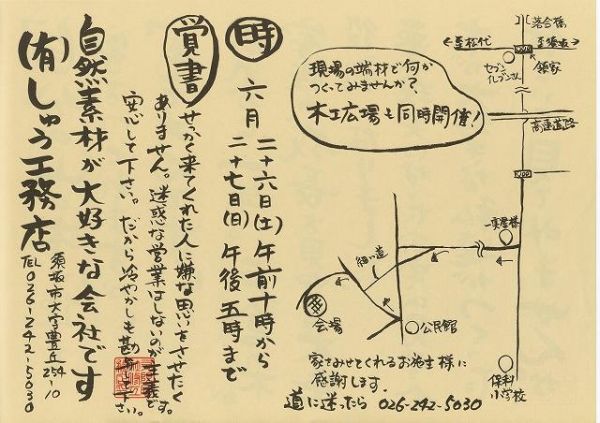 時
六月 二十六日(土) 午前十時から
二十七日(日) 午後五時まで
覚書
せっかく来てくれた人に嫌な思いをさせたく
ありません。迷惑な営業はしないのが主義です。
安心して下さい。だから冷やかしも勘弁して下さい。
自然素材が大好きな会社です
(有)しゅう工務店
須坂市大字豊丘254-10
TEL 026-242-5030
現場の端材で何か
つくってみませんか?
木工広場も同時開催!
落合橋
至松代
至須坂
セブンイレブンさん
領家
高速道路
細い道
会場
公民館
保科
小学校
家をみせてくれるお施主様に
感謝します。
道に迷ったら 026-242-5030